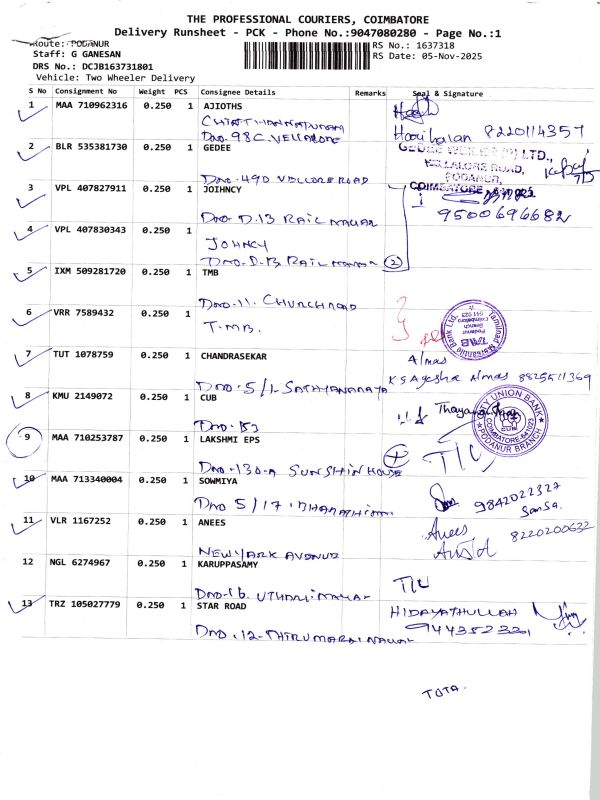 THE PROFESSIONAL COURIERS, COIMBATORE
Delivery Runsheet - PCK - Phone No.:9047080280 - Page No.:1
Route: PODANUR
Staff: G GANESAN
DRS No.: DCJB163731801
Vehicle: Two Wheeler Delivery
RS No.: 1637318
RS Date: 05-Nov-2025
S No Consignment No Weight PCS Consignee Details Remarks Seal & Signature
1 MAA 710962316 0.250 1 AJIOTHS
DNO-98C. VELLALORE
Haribalan 8220114357
2 BLR 535381730 0.250 1 GEDEE
DNO-490 VELLORE ROAD
VELLALORE ROAD,
PODANUR,
COIMBATORE
3 VPL 407827911 0.250 1 JOIHNCY
DNO-D.13 RAIL NAGAR
9500696682
4 VPL 407830343 0.250 1
JOHNCY
DNO-D.13 RAIL NAGAR 2
5 IXM 509281720 0.250 1 TMB
DNO-11. CHURCH ROAD
6 VRR 7589432 0.250 1
T.MB.
Tamilnad Mercantile Bank Ltd.
TMB
Podanur
Branch
Coimbatore
641 023
7 TUT 1078759 0.250 1 CHANDRASEKAR
DNO-5/1. SATHYANARAYA
Almas
K S Ayesha Almas 8825511369
8 KMU 2149072 0.250 1 CUB
DNO-B3
CITY UNION BANK
CUB
COIMBATORE-641023
PODANUR BRANCH
9 MAA 710253787 0.250 1 LAKSHMI EPS
DNO-130-A SUNSHIN HOUSE
10 MAA 713340004 0.250 1 SOWMIYA
DNO 5/17. BHARATHI
9842022327
11 VLR 1167252 0.250 1 ANEES
NEWYARK AVONUE
Anees 8220200632
12 NGL 6274967 0.250 1 KARUPPASAMY
DNO-16. UTHARI NAGAR
13 TRZ 105027779 0.250 1 STAR ROAD
DNO.12-THIRUMARAI NAGAR
HIDAYATHULLAH
9443523231
TOTA.